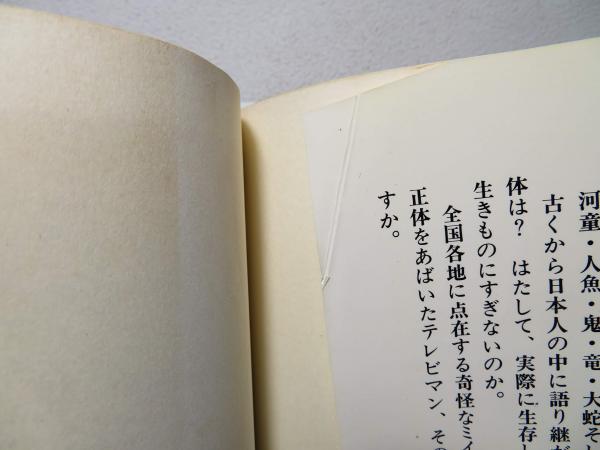 河童・人魚・鬼・竜・大蛇そし
古くから日本人の中に語り継が
体は？　はたして、実際に生存し
生きものにすぎないのか。
全国各地に点在する奇怪なミイ
正体をあばいたテレビマン、その
すか。